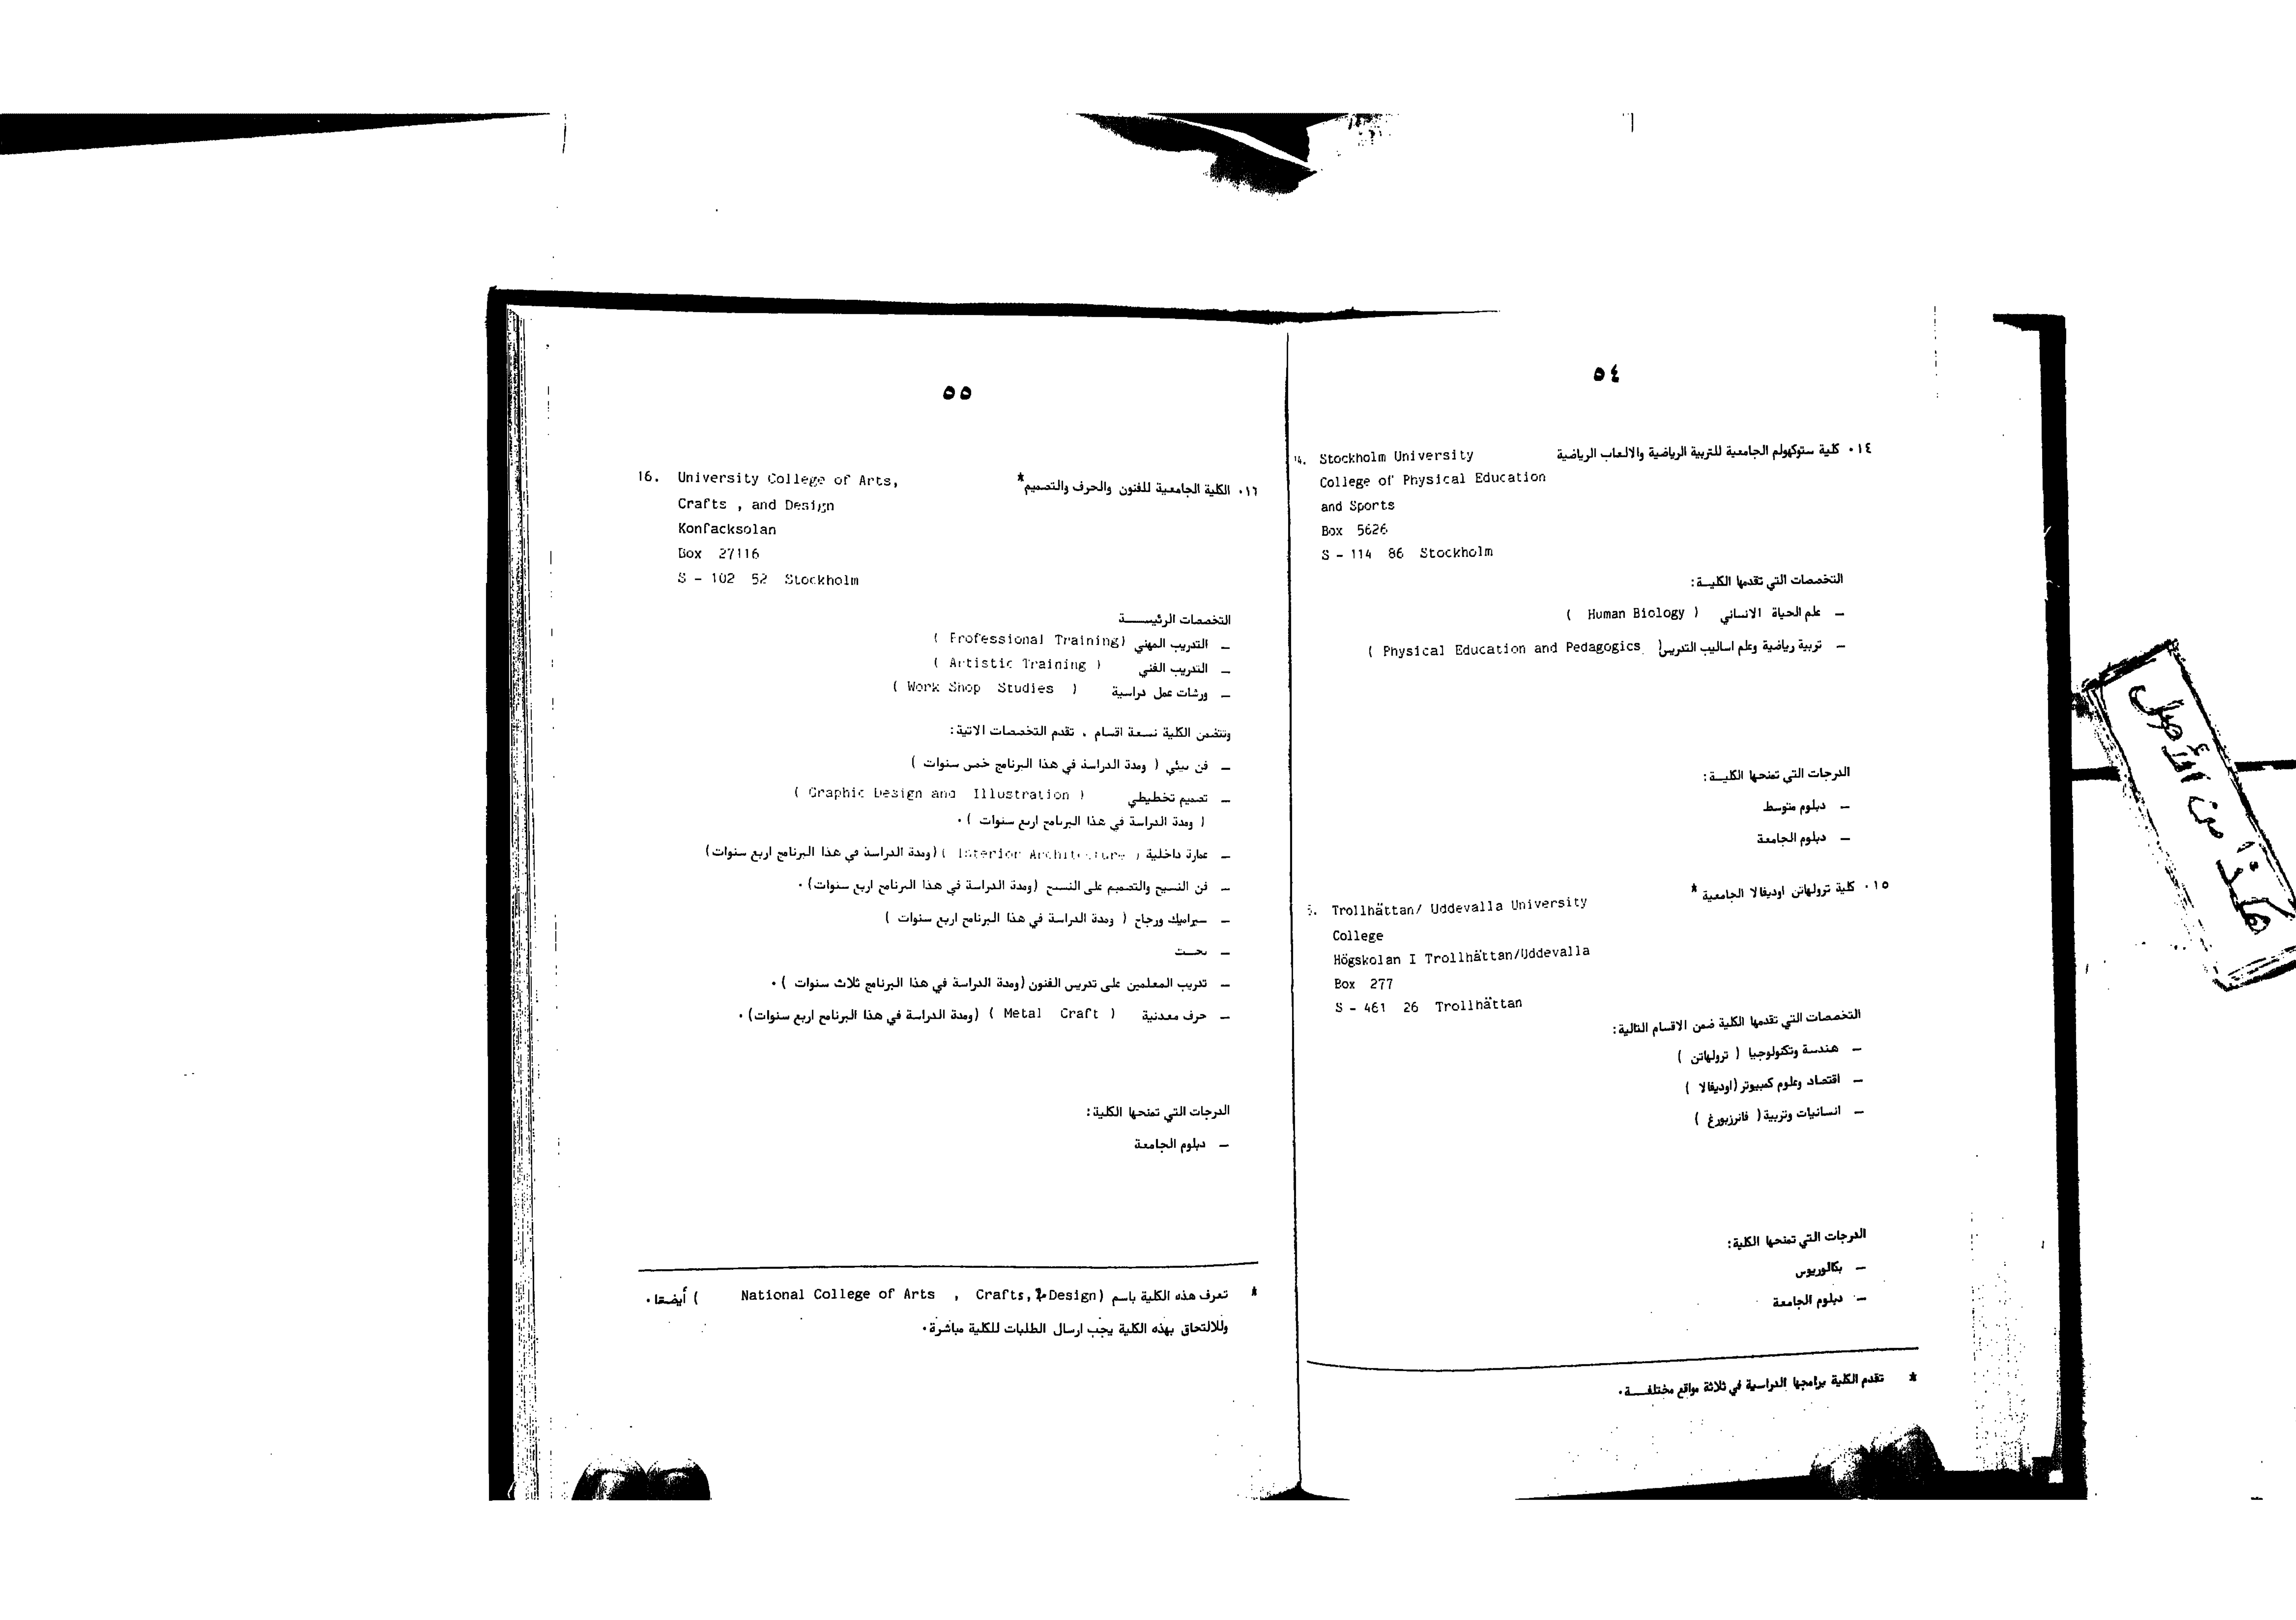 ٥٤
١٤٠ كلية ستوكهولم الجامعية للتربية الرياضية والالعاب الرياضية
14. Stockholm University
College of Physical Education
and Sports
Box 5626
S - 114 86 Stockholm
التخصصات التي تقدمها الكليــة:
— علم الحياة الانساني ( Human Biology )
— تربية رياضية وعلم اساليب التدريس( Physical Education and Pedagogics )
الدرجات التي تمنحها الكليــة:
— دبلوم متوسط
— دبلوم الجامعة
١٥٠ كلية ترولهاتن اوديفالا الجامعية *
5. Trollhättan/ Uddevalla University
College
Högskolan I Trollhättan/Uddevalla
Box 277
S - 461 26 Trollhättan
التخصصات التي تقدمها الكلية ضمن الاقسام التالية:
— هندسة وتكنولوجيا ( ترولهاتن )
— اقتصاد وعلوم كمبيوتر (اوديفالا )
— انسانيات وتربية ( فانرزبورغ )
الدرجات التي تمنحها الكلية:
— بكالوريوس
— دبلوم الجامعة
* تقدم الكلية برامجها الدراسية في ثلاثة مواقع مختلفــــة٠
٥٥
١٦٠ الكلية الجامعية للفنون والحرف والتصميم*
16. University College of Arts,
Crafts , and Design
Konfacksolan
Box 27116
S - 102 52 Stockholm
التخصصات الرئيســــة
— التدريب المهني (Professional Training )
— التدريب الفني ( Artistic Training )
— ورشات عمل دراسية ( Work Shop Studies )
وتتضمن الكلية تسعة اقسام ، تقدم التخصصات الاتية:
— فن بيئي ( ومدة الدراسة في هذا البرنامج خمس سنوات )
— تصميم تخطيطي ( Graphic Design and Illustration )
( ومدة الدراسة في هذا البرنامج اربع سنوات )٠
— عمارة داخلية ( Interior Architecture ) (ومدة الدراسة في هذا البرنامج اربع سنوات)
— فن النسيج والتصميم على النسيج (ومدة الدراسة في هذا البرنامج اربع سنوات)٠
— سيراميك وزجاج ( ومدة الدراسة في هذا البرنامج اربع سنوات )
— نحــت
— تدريب المعلمين على تدريس الفنون (ومدة الدراسة في هذا البرنامج ثلاث سنوات )٠
— حرف معدنية ( Metal Craft ) (ومدة الدراسة في هذا البرنامج اربع سنوات)٠
الدرجات التي تمنحها الكلية:
— دبلوم الجامعة
* تعرف هذه الكلية باسم (National College of Arts , Crafts, & Design ) أيضـا٠
وللالتحاق بهذه الكلية يجب ارسال الطلبات للكلية مباشرة٠
هكذا من الأصل